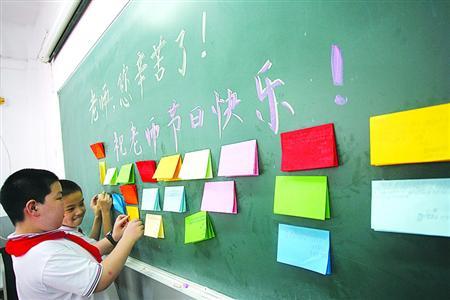 老师，您辛苦了！
祝老师节日快乐！